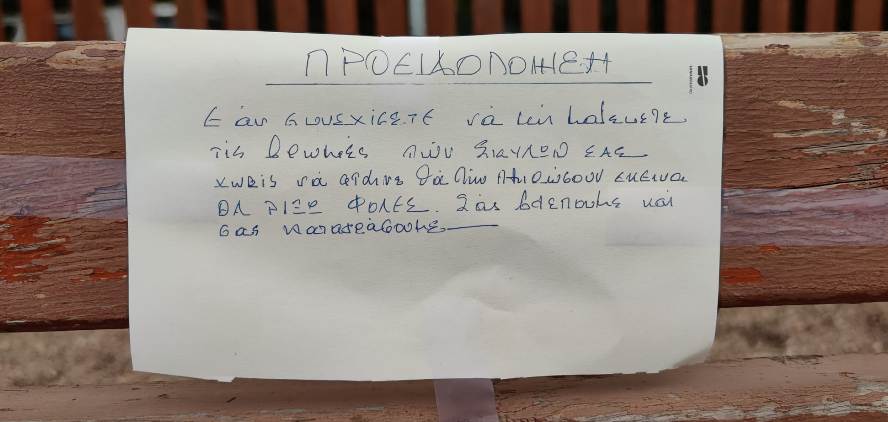 ΠΡΟΕΙΔΟΠΟΙΗΣΗ
Εάν συνεχίσετε νά μήν μαζεύετε
τίς βρωμιές τών ΣΚΥΛΩΝ ΣΑΣ
χωρίς νά φταινε θά τήν πληρώσουν εκεινα
ΘΑ ΡΙΞΩ ΦΟΛΕΣ. Σάς βλέπουμε καί
σας καταγράφουμε